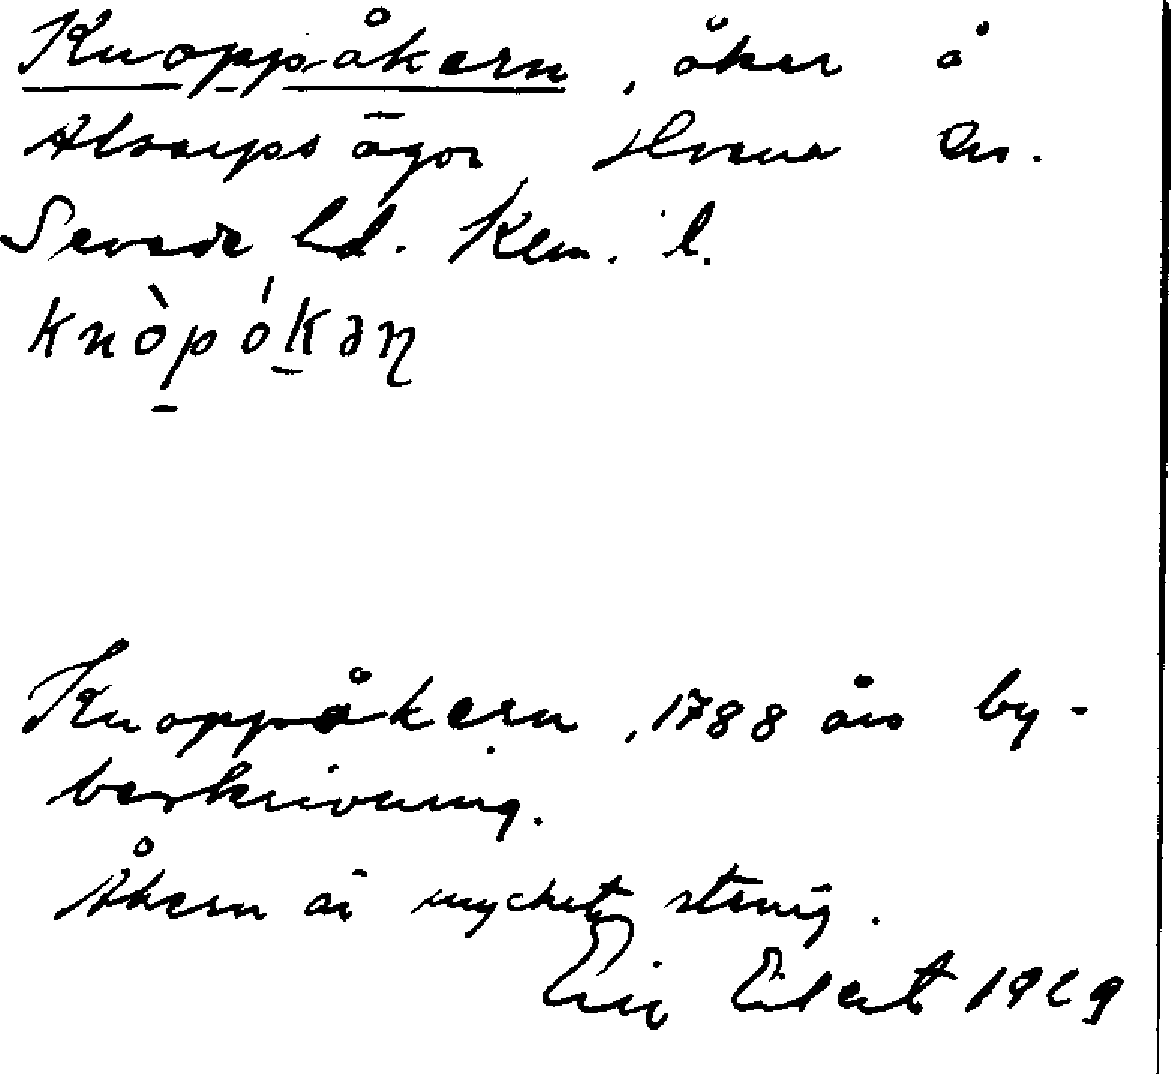 Knoppåkern, åker å
Alsarps ägor, Hvena sn.
Sevede hd. Klm. l.
knòpókəɳ
Knoppåkern, 1788 års by-
beskrivning.
Åkern är mycket stenig.
Eric 1929